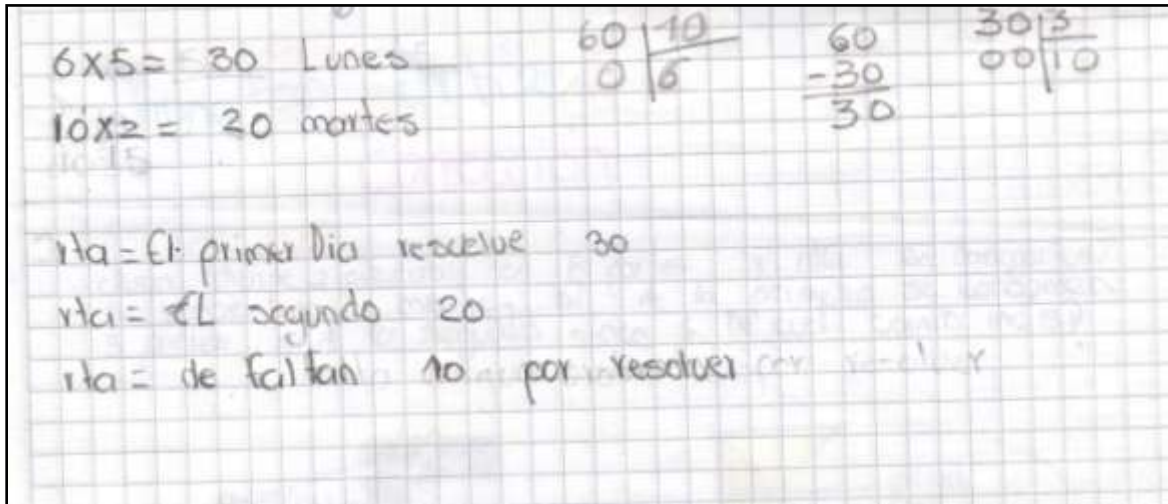 6x5= 30 Lunes
10x2= 20 martes
60 10
0 6
60
-30
30
30 3
00 10
rta = El primer Dia resuelve 30
rta = EL segundo 20
rta = de faltan 10 por resolver